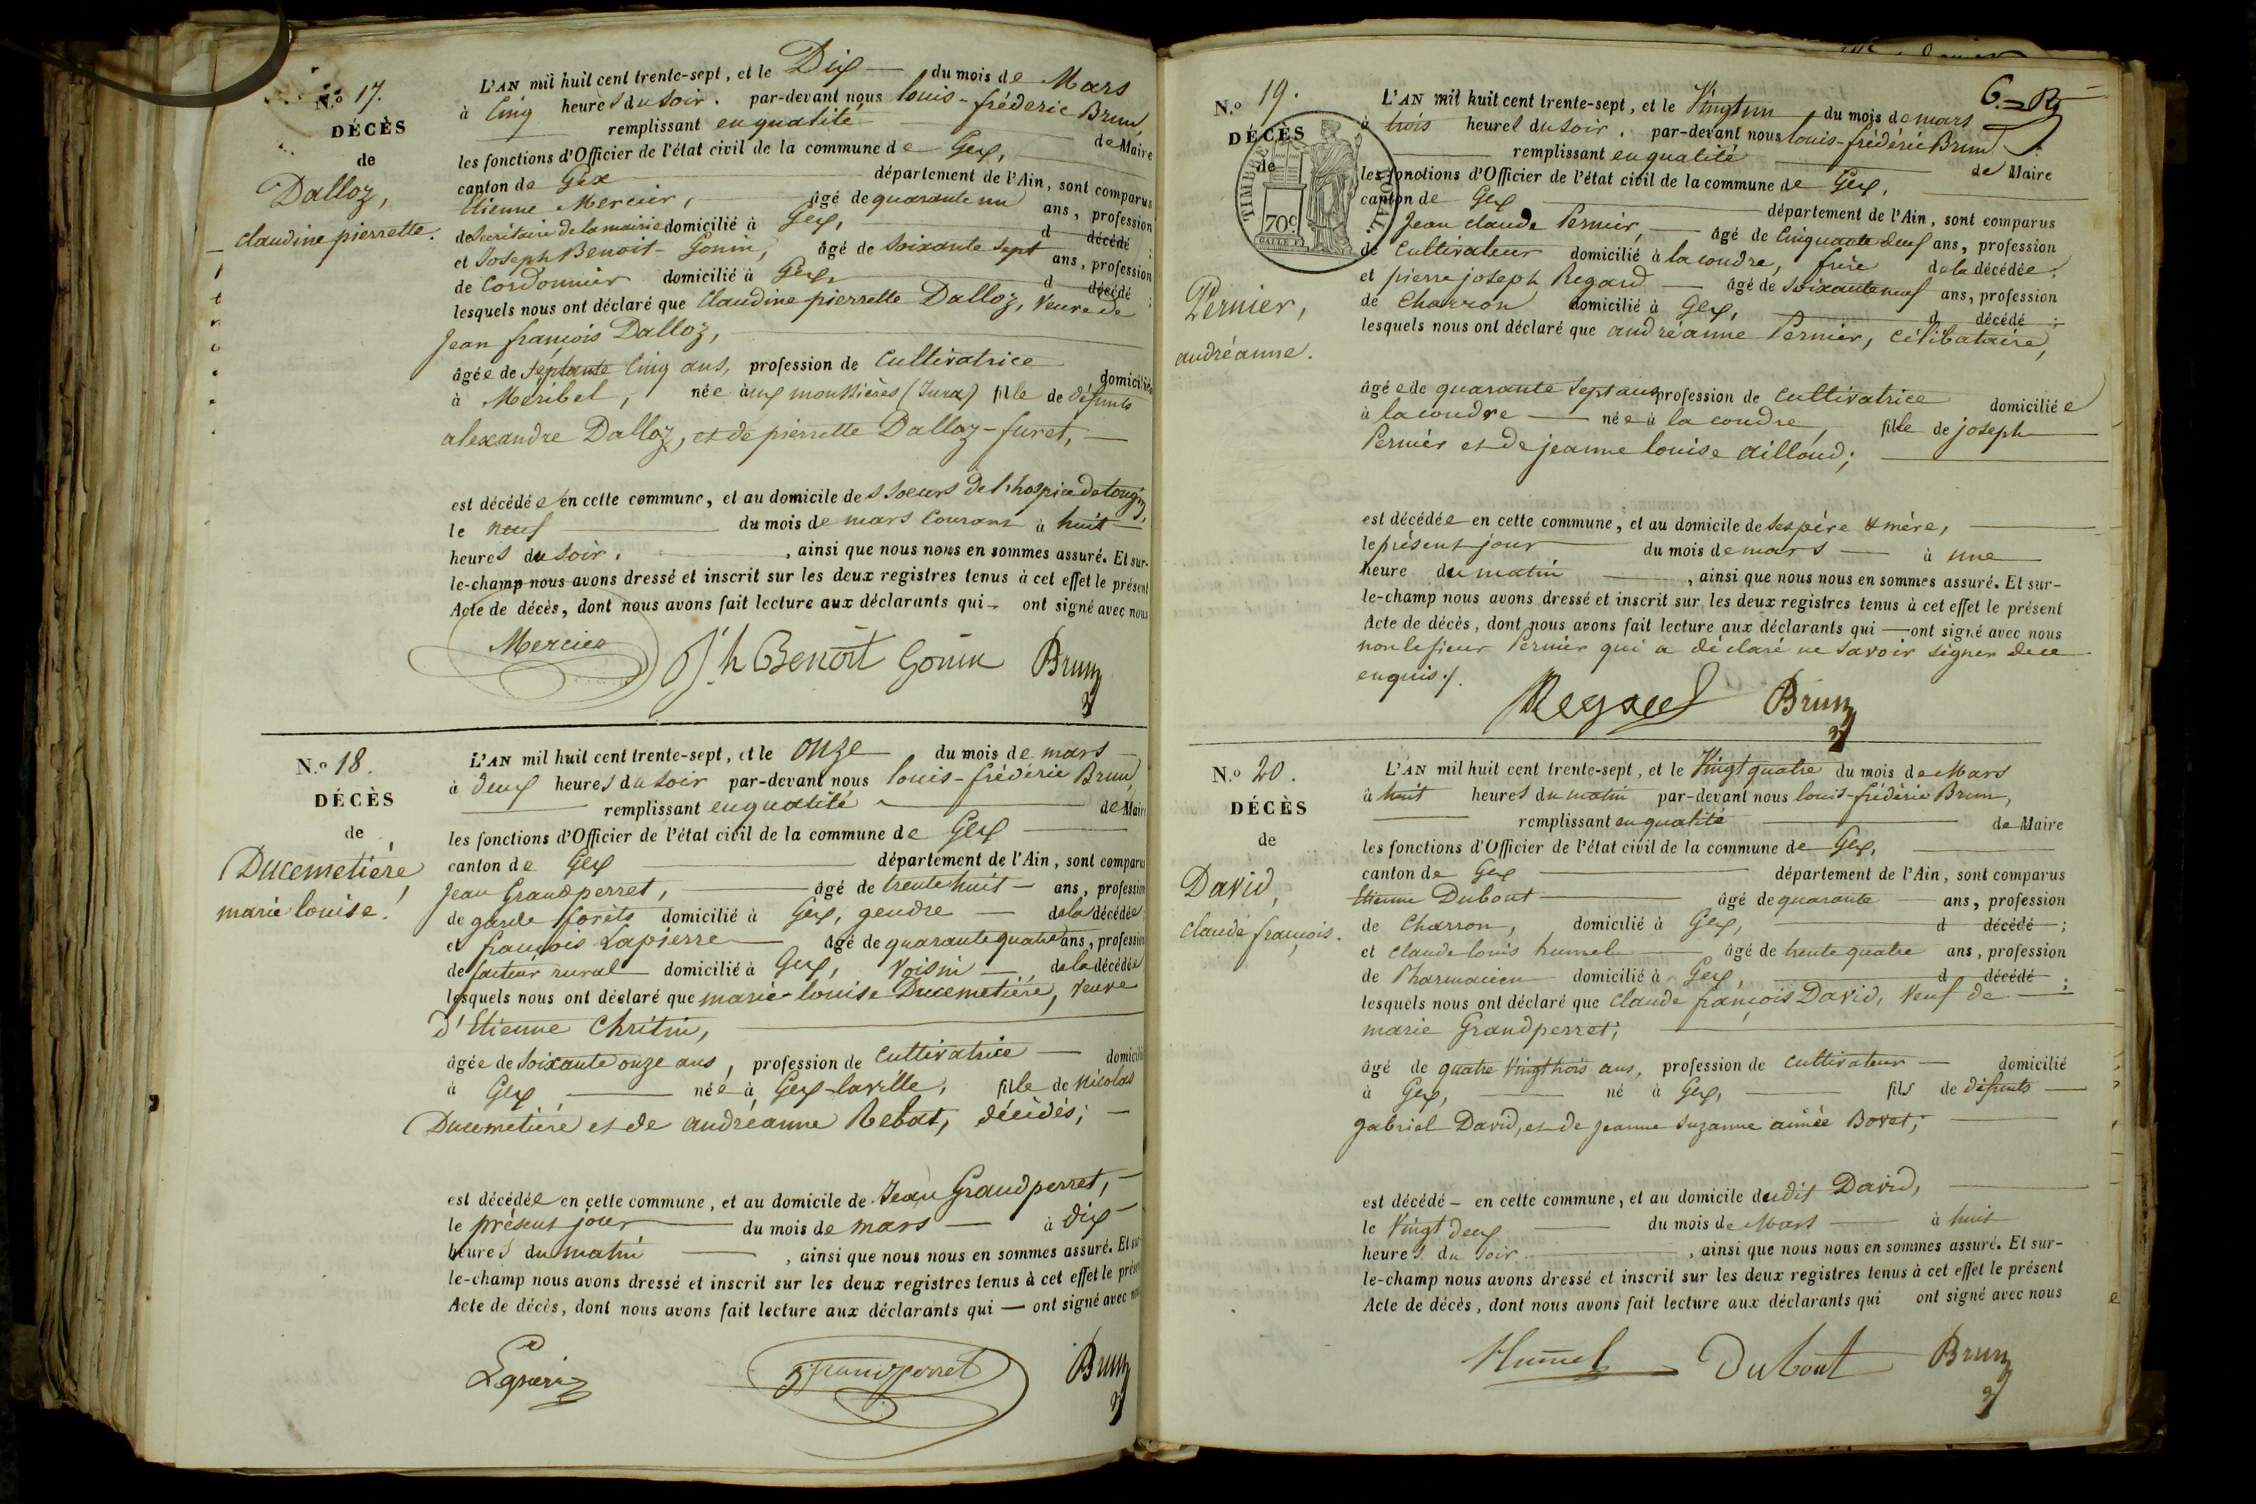 N.o 17.
DÉCÈS
de
Dalloz,
claudine pierrette.
L'AN mil huit cent trente-sept, et le Dix du mois de Mars
à Cinq heures du soir. par-devant nous louis-fréderic Brun,
remplissant en qualité de Maire
les fonctions d'Officier de l'état civil de la commune de Gex,
canton de Gex département de l'Ain, sont comparus
Etienne Mercier, âgé de quarante un ans, profession
de Secrétaire de la mairie domicilié à Gex, d décédé ;
et Joseph Benoit-Gonin, âgé de soixante sept ans, profession
de Cordonnier domicilié à Gex, d décédé ;
lesquels nous ont déclaré que Claudine pierrette Dalloz, veuve de
Jean françois Dalloz,
âgée de septante Cinq ans, profession de Cultivatrice domiciliée
à Meribel, née aux moussières (Jura) fille de défunts
alexandre Dalloz, et de pierrette Dalloz-furet,
est décédée en cette commune, et au domicile des Soeurs de l'hospice de tougin,
le neuf du mois de mars Courant à huit
heures du soir. , ainsi que nous nous en sommes assuré. Et sur-
le-champ nous avons dressé et inscrit sur les deux registres tenus à cet effet le présent
Acte de décès, dont nous avons fait lecture aux déclarants qui ont signé avec nous
Mercier Jh Benoit Gonin Brun
N.o 18.
DÉCÈS
de
Ducemetière,
marie louise.
L'AN mil huit cent trente-sept, et le onze du mois de mars
à deux heures du soir par-devant nous louis-frédéric Brun,
remplissant en qualité de Maire
les fonctions d'Officier de l'état civil de la commune de Gex
canton de Gex département de l'Ain, sont comparus
Jean Grandperret, âgé de trente huit ans, profession
de garde forêts domicilié à Gex, gendre de la décédée
et françois Lapierre âgé de quarante quatre ans, profession
de facteur rural domicilié à Gex, voisin de la décédée
lesquels nous ont déclaré que marie-louise Ducemetière, veuve
d'Etienne Chrétin,
âgée de soixante onze ans, profession de cultivatrice domicilié
à Gex née à Gex-laville, fille de Nicolas
Ducemetière et de andréanne Rebat, décédés;
est décédée en cette commune, et au domicile de Jean Grandperret,
le présent jour du mois de mars à dix
heures du matin , ainsi que nous nous en sommes assuré. Et sur-
le-champ nous avons dressé et inscrit sur les deux registres tenus à cet effet le présent
Acte de décès, dont nous avons fait lecture aux déclarants qui ont signé avec nous
Lapierre Grandperret Brun
6.
N.o 19.
DÉCÈS
de
TIMBRE ROYAL.
70c
Pernier,
andréanne.
L'AN mil huit cent trente-sept, et le Vingt un du mois de mars
à trois heures du soir. par-devant nous louis-frédéric Brun
remplissant en qualité de Maire
les fonctions d'Officier de l'état civil de la commune de Gex,
canton de Gex département de l'Ain, sont comparus
Jean claude Pernier, âgé de Cinquante deux ans, profession
de Cultivateur domicilié à la coudre, frère de la décédée;
et pierre joseph Regard âgé de soixante neuf ans, profession
de Charron domicilié à Gex, d décédé ;
lesquels nous ont déclaré que andréanne Pernier, célibataire,
âgée de quarante sept ans profession de cultivatrice domiciliée
à la coudre née à la coudre, fille de joseph
Pernier et de jeanne louise ailloud;
est décédée en cette commune, et au domicile de ses père & mère,
le présent jour du mois de mars à une
heure du matin , ainsi que nous nous en sommes assuré. Et sur-
le-champ nous avons dressé et inscrit sur les deux registres tenus à cet effet le présent
Acte de décès, dont nous avons fait lecture aux déclarants qui ont signé avec nous
non le sieur Pernier qui a déclaré ne savoir signer de ce
enquis./.
Regard Brun
N.o 20.
DÉCÈS
de
David,
claude françois.
L'AN mil huit cent trente-sept, et le Vingt quatre du mois de Mars
à huit heures du matin par-devant nous louis-frédéric Brun,
remplissant en qualité de Maire
les fonctions d'Officier de l'état civil de la commune de Gex,
canton de Gex département de l'Ain, sont comparus
Etienne Dubout âgé de quarante ans, profession
de Charron, domicilié à Gex, d décédé ;
et claude louis hummel âgé de trente quatre ans, profession
de Pharmacien domicilié à Gex, d décédé ;
lesquels nous ont déclaré que claude françois David, Veuf de
marie Grandperret;
âgé de quatre Vingt trois ans, profession de cultivateur domicilié
à Gex, né à Gex, fils de défunts
gabriel David, et de jeanne suzanne aimée Bovet;
est décédé en cette commune, et au domicile dudit David,
le Vingt deux du mois de Mars à huit
heures du soir , ainsi que nous nous en sommes assuré. Et sur-
le-champ nous avons dressé et inscrit sur les deux registres tenus à cet effet le présent
Acte de décès, dont nous avons fait lecture aux déclarants qui ont signé avec nous
Hummel Dubout Brun